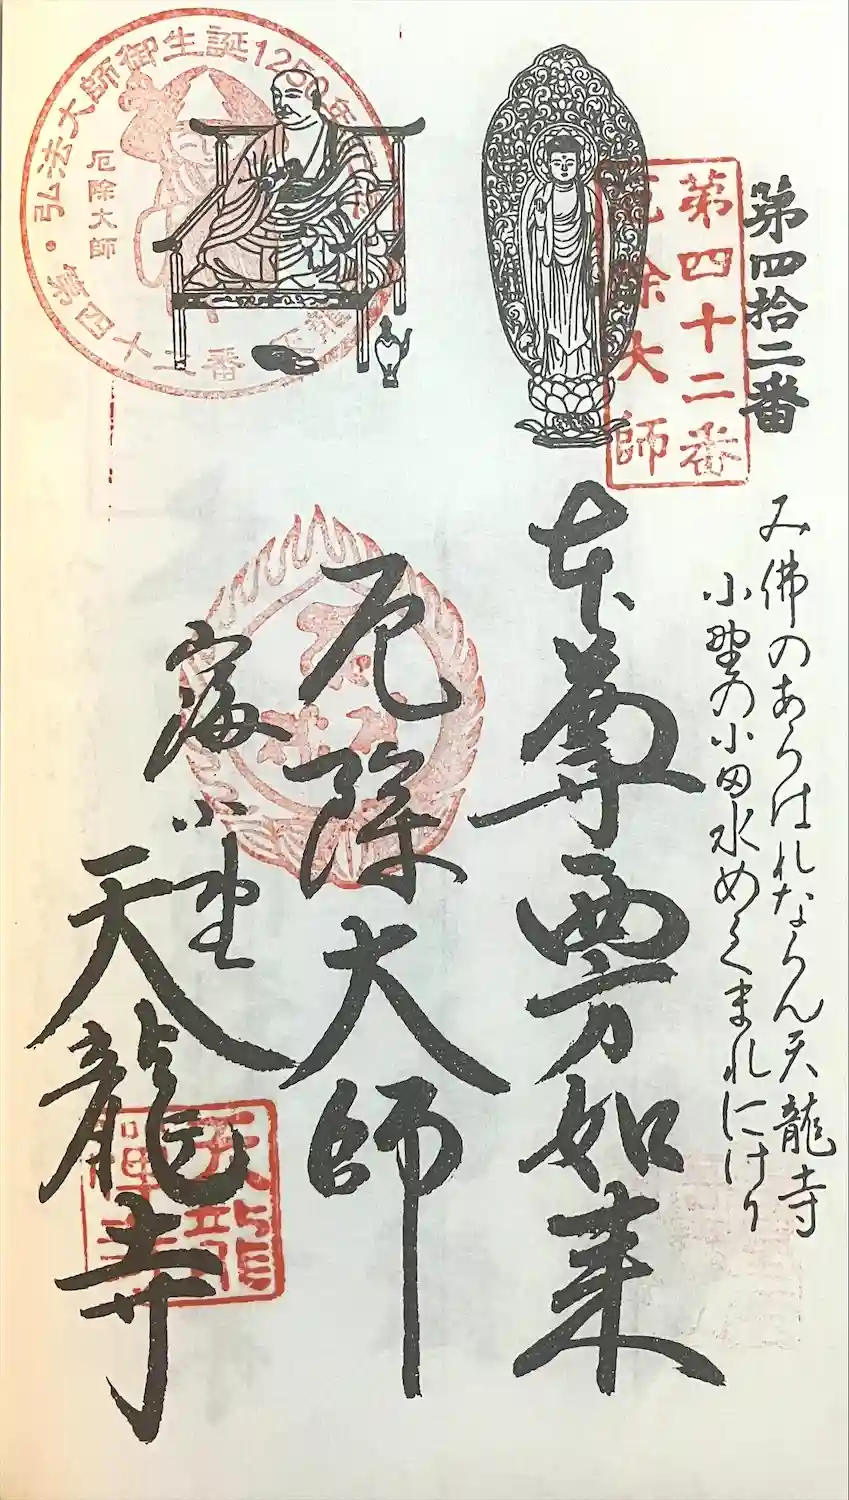 第四拾二番
第四十二番
厄除大師
み佛のあらはれならん天龍寺
小野の小田水めくまれにけり
本尊西方如来
厄除大師
窪小野
天龍寺
弘法大師御生誕1250年
厄除大師
第四十二番
天龍
禅寺